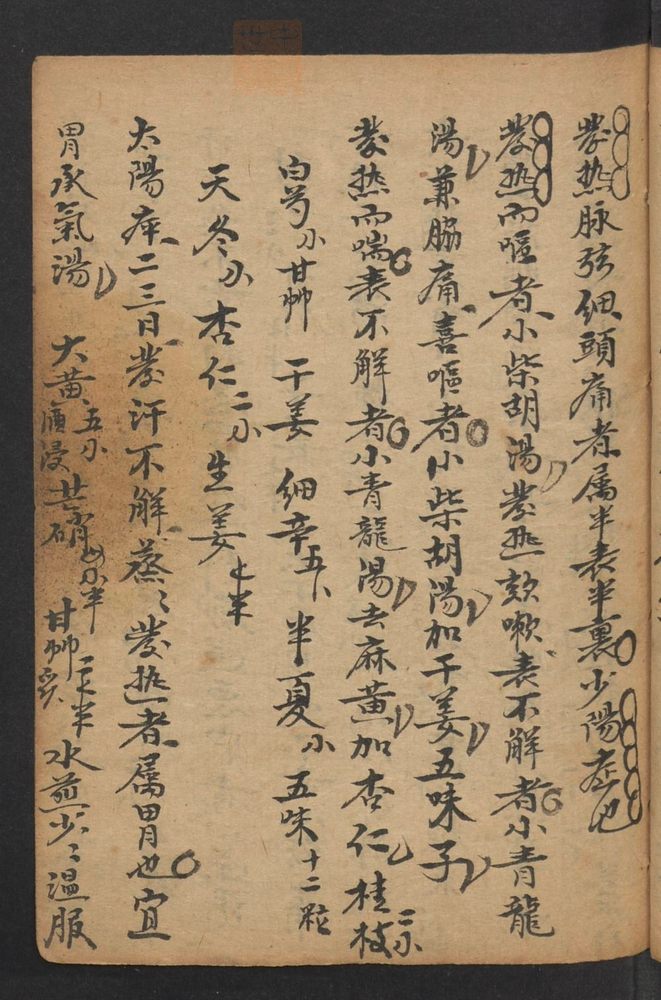 發热脉弦细頭痛者属半表半裏少陽症也
發热而嘔者小柴胡湯發热欬嗽表不解者小青龍
湯兼脇痛喜嘔者小柴胡湯加干姜五味子
發热而喘表不解者小青龍湯去麻黄加杏仁桂枝二小
白芍小甘艸 干姜 细辛五卜半夏小 五味十二粒
天冬小杏仁二小生姜半
太陽病二三日發汗不解蒸〻發热者属胃也宜
胃承氣湯 大黄五小酒浸芒硝半甘艸炙半水煎少〻温服